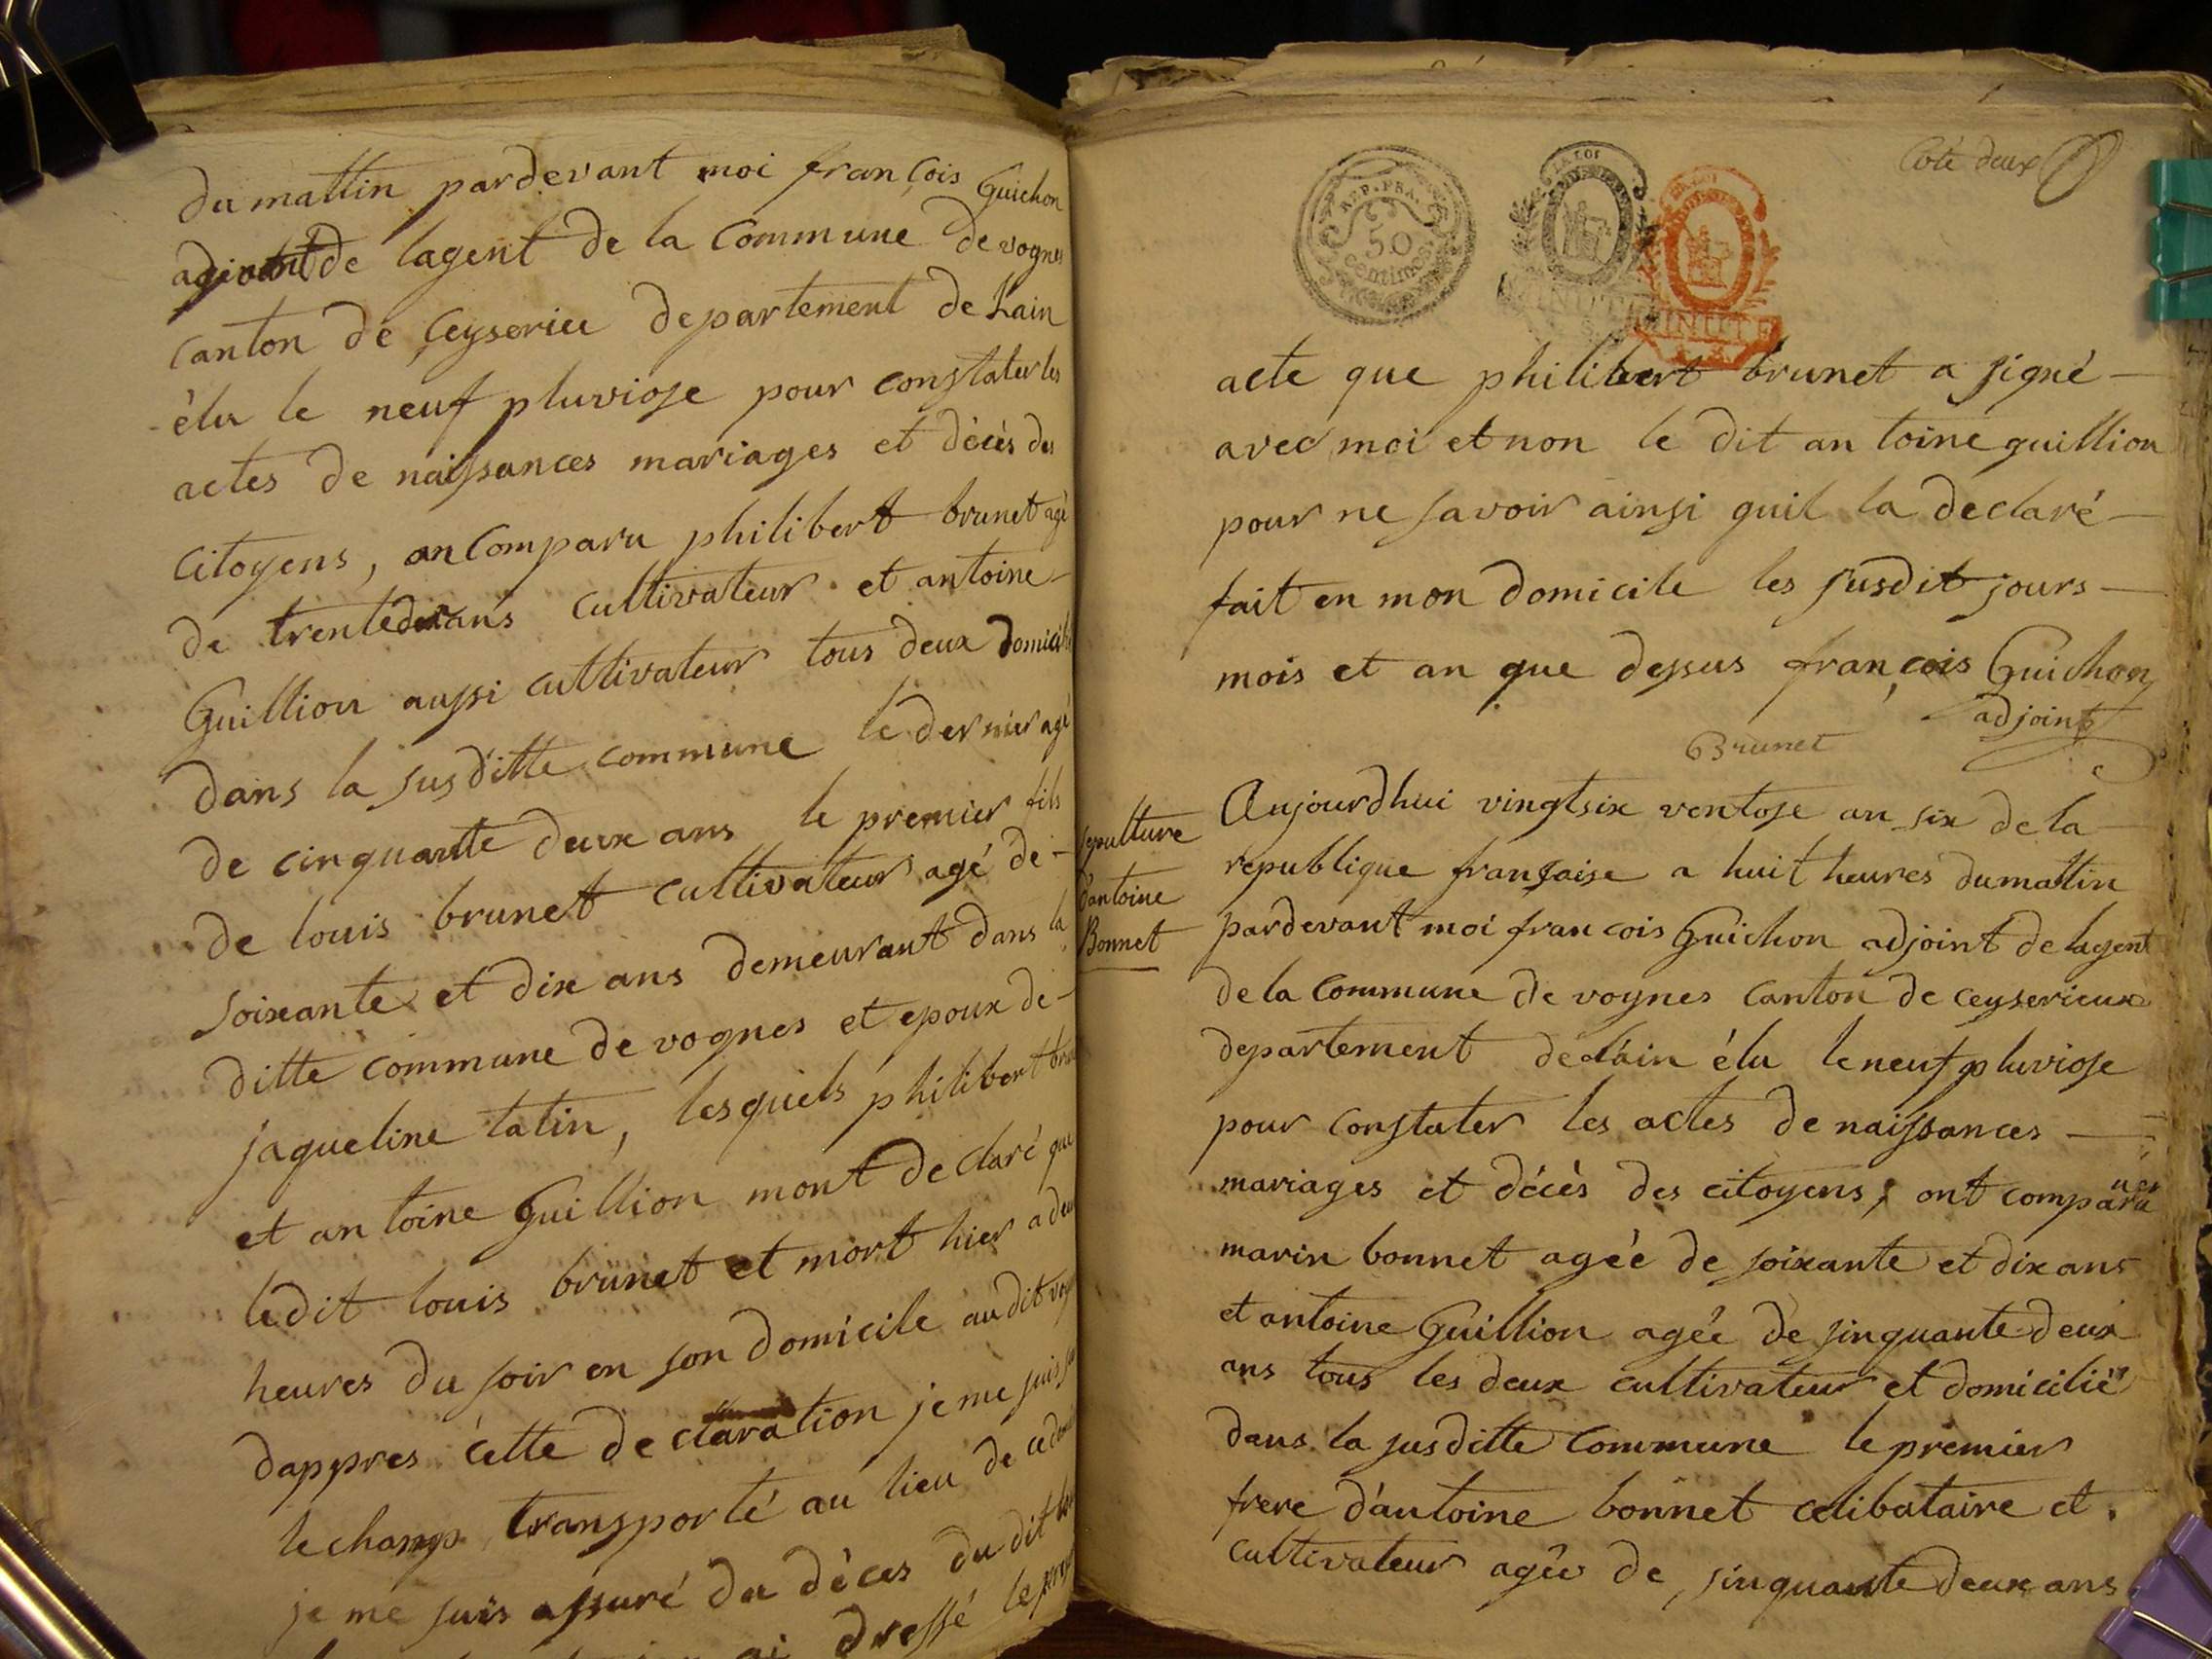 du mattin pardevant moi françois Guichon
adjoint de lagent de la Commune de vognes
canton de Ceyserieu departement de Lain
élu le neuf pluviose pour constater les
actes de naissances mariages et décès des
citoyens, on Comparu philibert brunet agé
de trentedeux ans cultivateur et antoine
Guillion aussi cultivateur tous deux domicilié
dans la susditte commune le dernier agé
de cinquante deux ans le premier fils
de louis brunet cultivateur agé de
soixante et dix ans demeurant dans la
ditte commune de vognes et epoux de
jaqueline tatin, lesquels philibert
et antoine Guillion mont declaré que
ledit louis brunet et mort hier a deux
heures du soir en son domicile audit
dappres cette declaration je me suis
lechamp transporté au lieu de ce
je me suis assuré du déces du dit
ai dressé le
Coté deux
REP. FRA.
50
centimes
LA LOI
MINUTE
MINUTE
acte que philibert brunet a signé
avec moi et non le dit antoine guillion
pour ne savoir ainsi quil la declaré
fait en mon domicile les susdit jours
mois et an que dessus françois Guichon
adjoint
Brunet
sepulture
d'antoine
Bonnet
Aujourdhui vingtsix ventose an six de la
republique française a huit heures du mattin
pardevant moi francois Guichon adjoint de lagent
de la Commune de vognes Canton de ceyserieux
departement de l'ain élu le neuf pluviose
pour constater les actes de naissances
mariages et décès des citoyens, ont comparu
marin bonnet agée de soixante et dix ans
et antoine Guillion agée de sinquante deux
ans tous les deux cultivateur et domicilié
dans la susditte Commune le premier
frere d'antoine bonnet celibataire et
cultivateur agée de sinquante deux ans